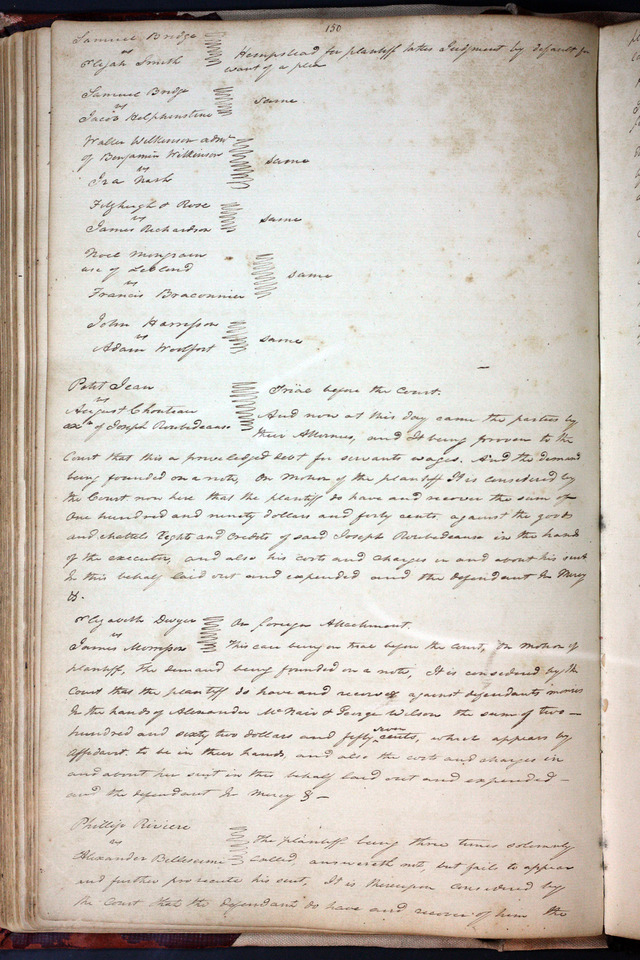 150
Samuel Bridge
vs
Elijah Smith
Hempstead for plaintiff takes Judgment by default for
want of a plea
Samuel Bridge
vs
Jacob Helphenstine
same
Walter Wilkinson admr
of Benjamin Wilkinson
vs
Ira Nash
same
Fitzhugh & Rose
vs
James Richardson
same
Noel Mongrain
use of Leblond
vs
Francis Braconnier
same
John Harrison
vs
Adam Woolfort
same
Petit Jean
vs
August Chouteau
exr of Joseph Robedeause
Trial before the Court.
And now at this day came the parties by
their Attornies, and It being proven to the
Court that this a priviledged debt for servants wages. And the demand
being founded on a note, On Motion of the plaintiff It is considered by
the Court now here that the plaintiff do have and recover the sum of
One hundred and ninety dollars and forty cents. against the goods
and chattels rights and Credits of said Joseph Robedeause in the hands
of the executor, and also his costs and charges in and about his suit
In this behalf laid out and expended and the defendant In Mercy
&.
Elyzabeth Dwyer
vs
James Morrison
On foreign Attachment.
This case being on trial before the court, On motion of
plaintiff, The demand being founded on a note, It is considered by the
Court that the plaintiff do have and recover against defendants monies
In the hands of Alexander McNair & George Wilson the sum of two
hundred and sixty two dollars and fifty seven cents, which appears by
Affidavit to be in their hands, and also the costs and charges in
and about her suit in this behalf laid out and expended
and the defendant In Mercy &
Phillip Riviere
vs
Alexander Bellessime
The plaintiff being three times solemnly
Called answereth not, but fails to appear
and further prosecute his suit, It is thereupon considered by
the Court that the defendant do have and recover of him the